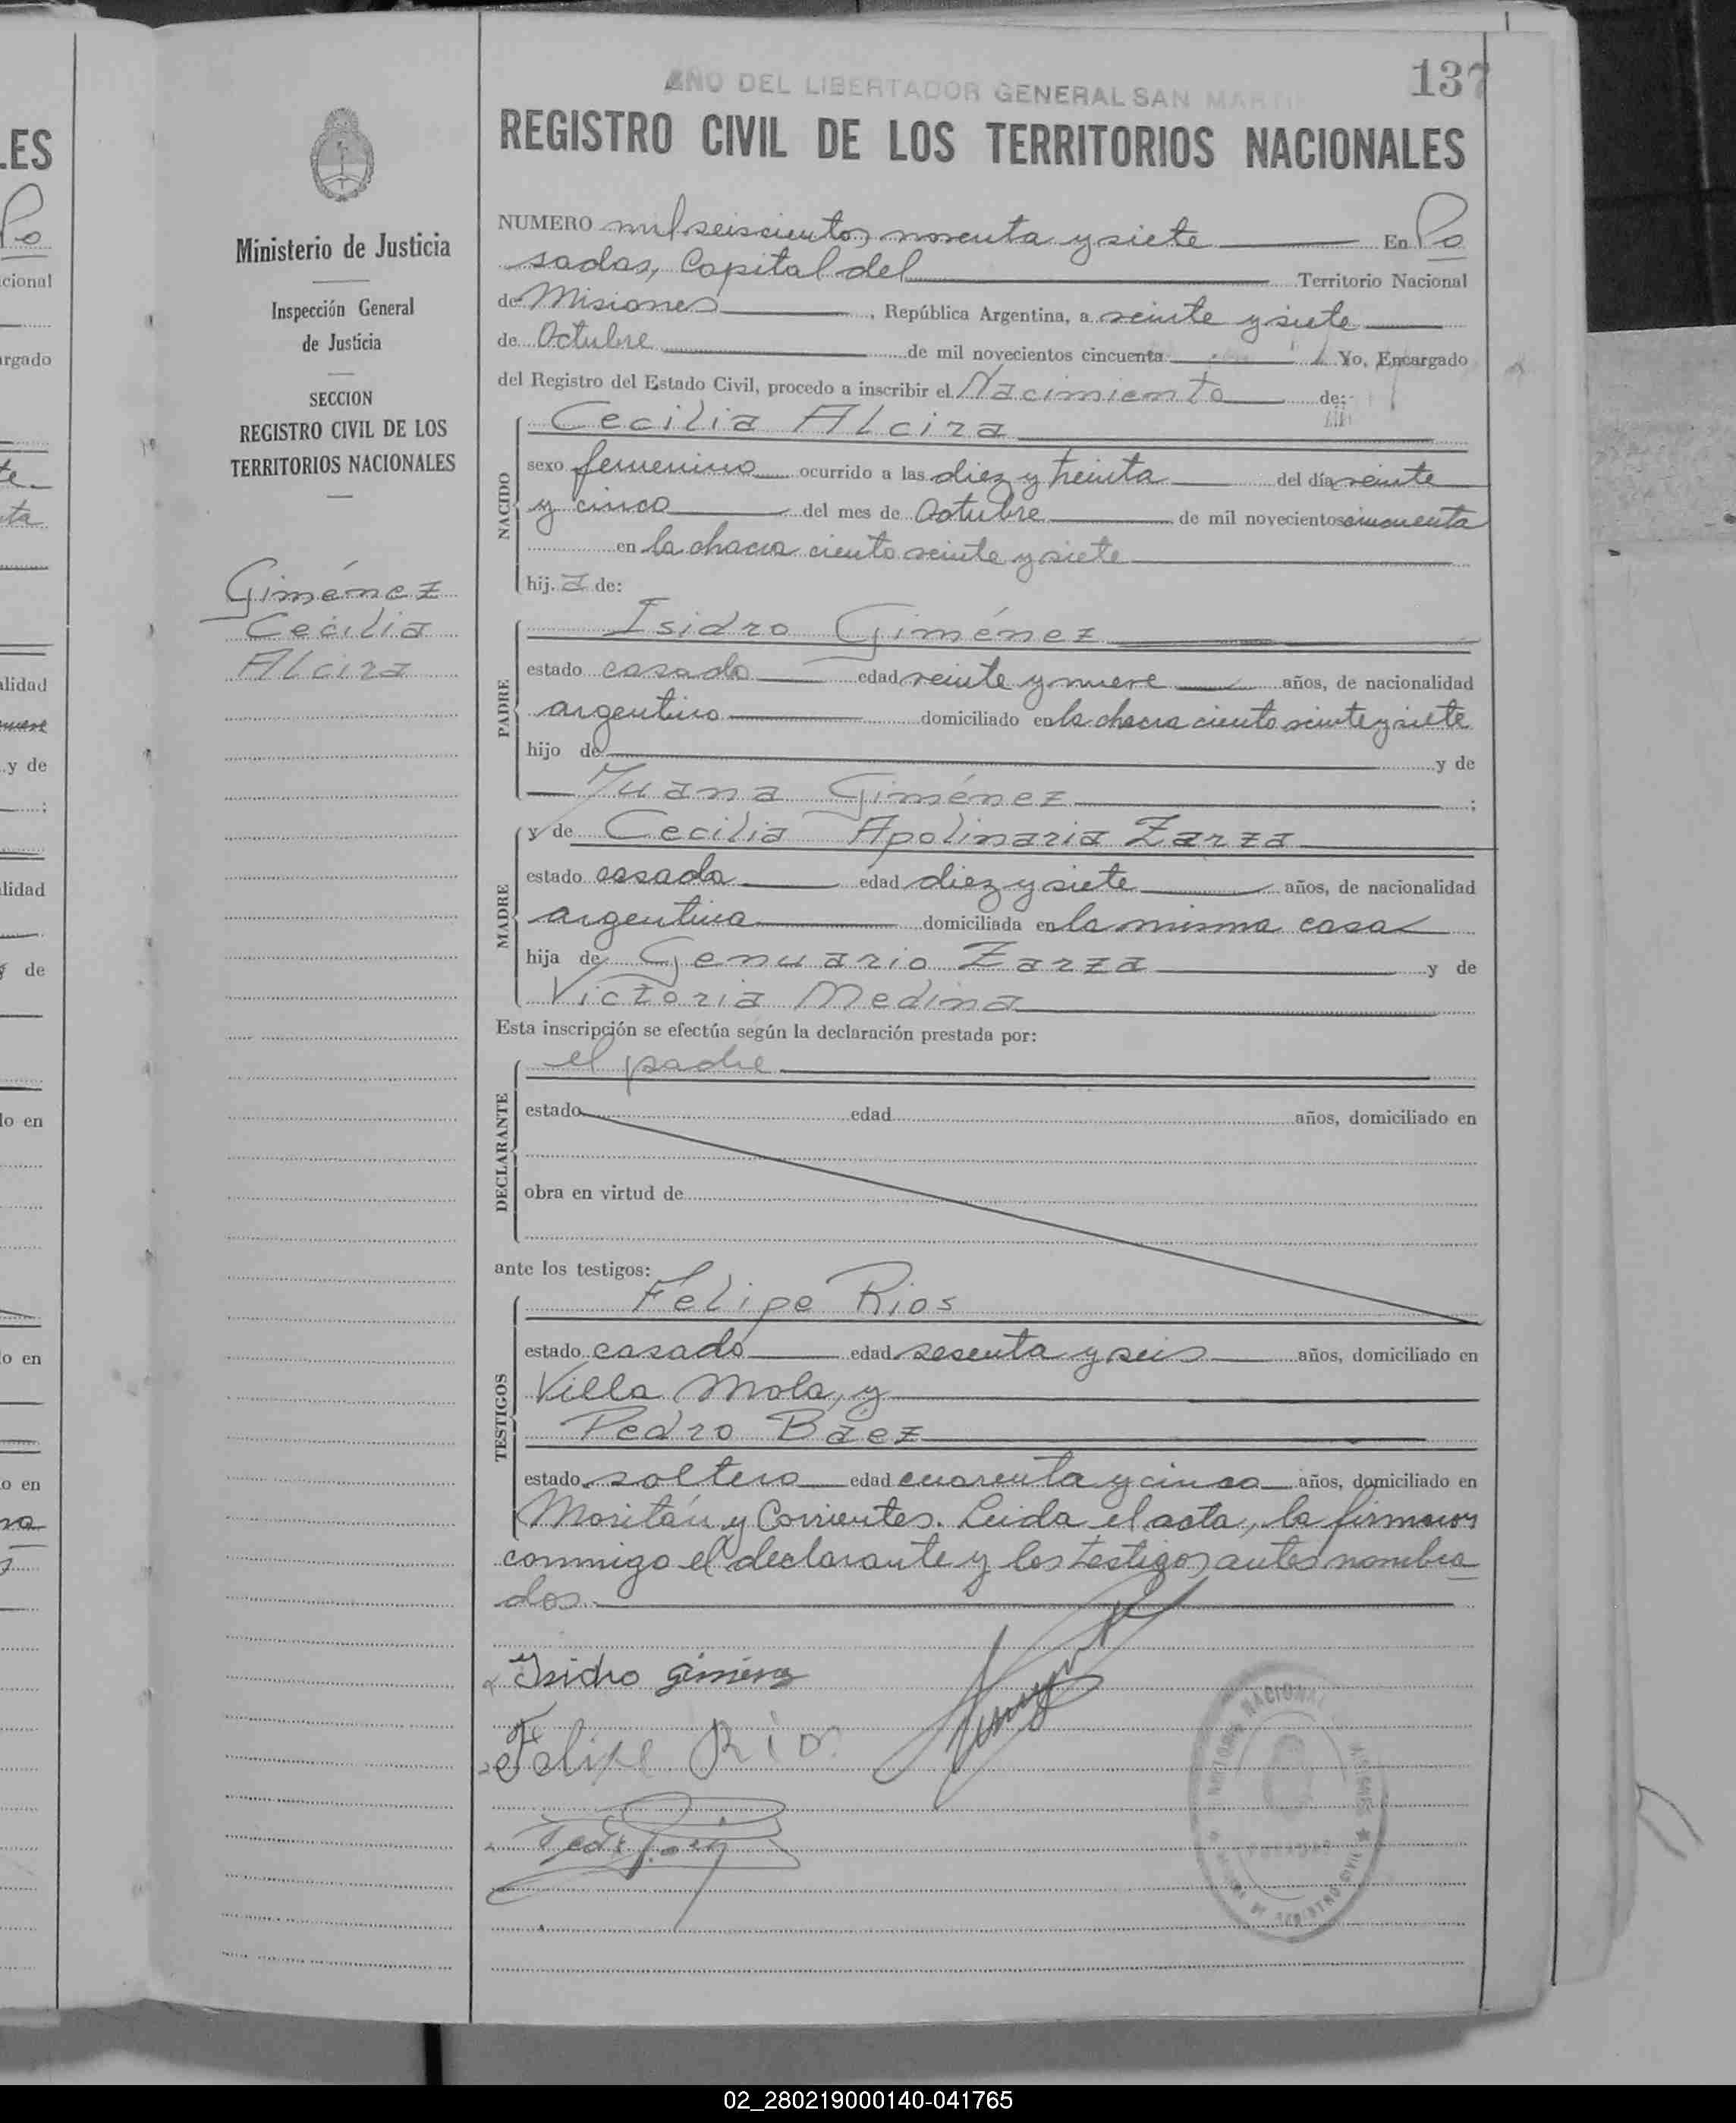 AÑO DEL LIBERTADOR GENERAL SAN MARTIN
137
REGISTRO CIVIL DE LOS TERRITORIOS NACIONALES
Ministerio de Justicia
Inspección General
de Justicia
SECCION
REGISTRO CIVIL DE LOS
TERRITORIOS NACIONALES
Giménez
Cecilia
Alcira
NUMERO mil seiscientos noventa y siete En Po
sadas, Capital del Territorio Nacional
de Misiones, República Argentina, a veinte y siete
de Octubre de mil novecientos cincuenta Yo, Encargado
del Registro del Estado Civil, procedo a inscribir el Nacimiento de:
NACIDO
Cecilia Alcira
sexo femenino ocurrido a las diez y treinta del día veinte
y cinco del mes de Octubre de mil novecientos cincuenta
en la chacra ciento veinte y siete
hij a de:
PADRE
Isidro Giménez
estado casado edad veinte y nueve años, de nacionalidad
argentino domiciliado en la chacra ciento veinte y siete
hijo de y de
Juana Giménez ;
MADRE
y de Cecilia Apolinaria Zarza
estado casada edad diez y siete años, de nacionalidad
argentina domiciliada en la misma casa
hija de Genuario Zarza y de
Victoria Medina
Esta inscripción se efectúa según la declaración prestada por:
DECLARANTE
el padre
estado edad años, domiciliado en
obra en virtud de
ante los testigos:
TESTIGOS
Felipe Rios
estado casado edad sesenta y seis años, domiciliado en
Villa Mola, y
Pedro Báez
estado soltero edad cuarenta y cinco años, domiciliado en
Moritán y Corrientes. Leida el acta, la firmaron
conmigo el declarante y los testigos antes nombra
dos.
Isidro Giménez
Felipe Rios
02_280219000140-041765